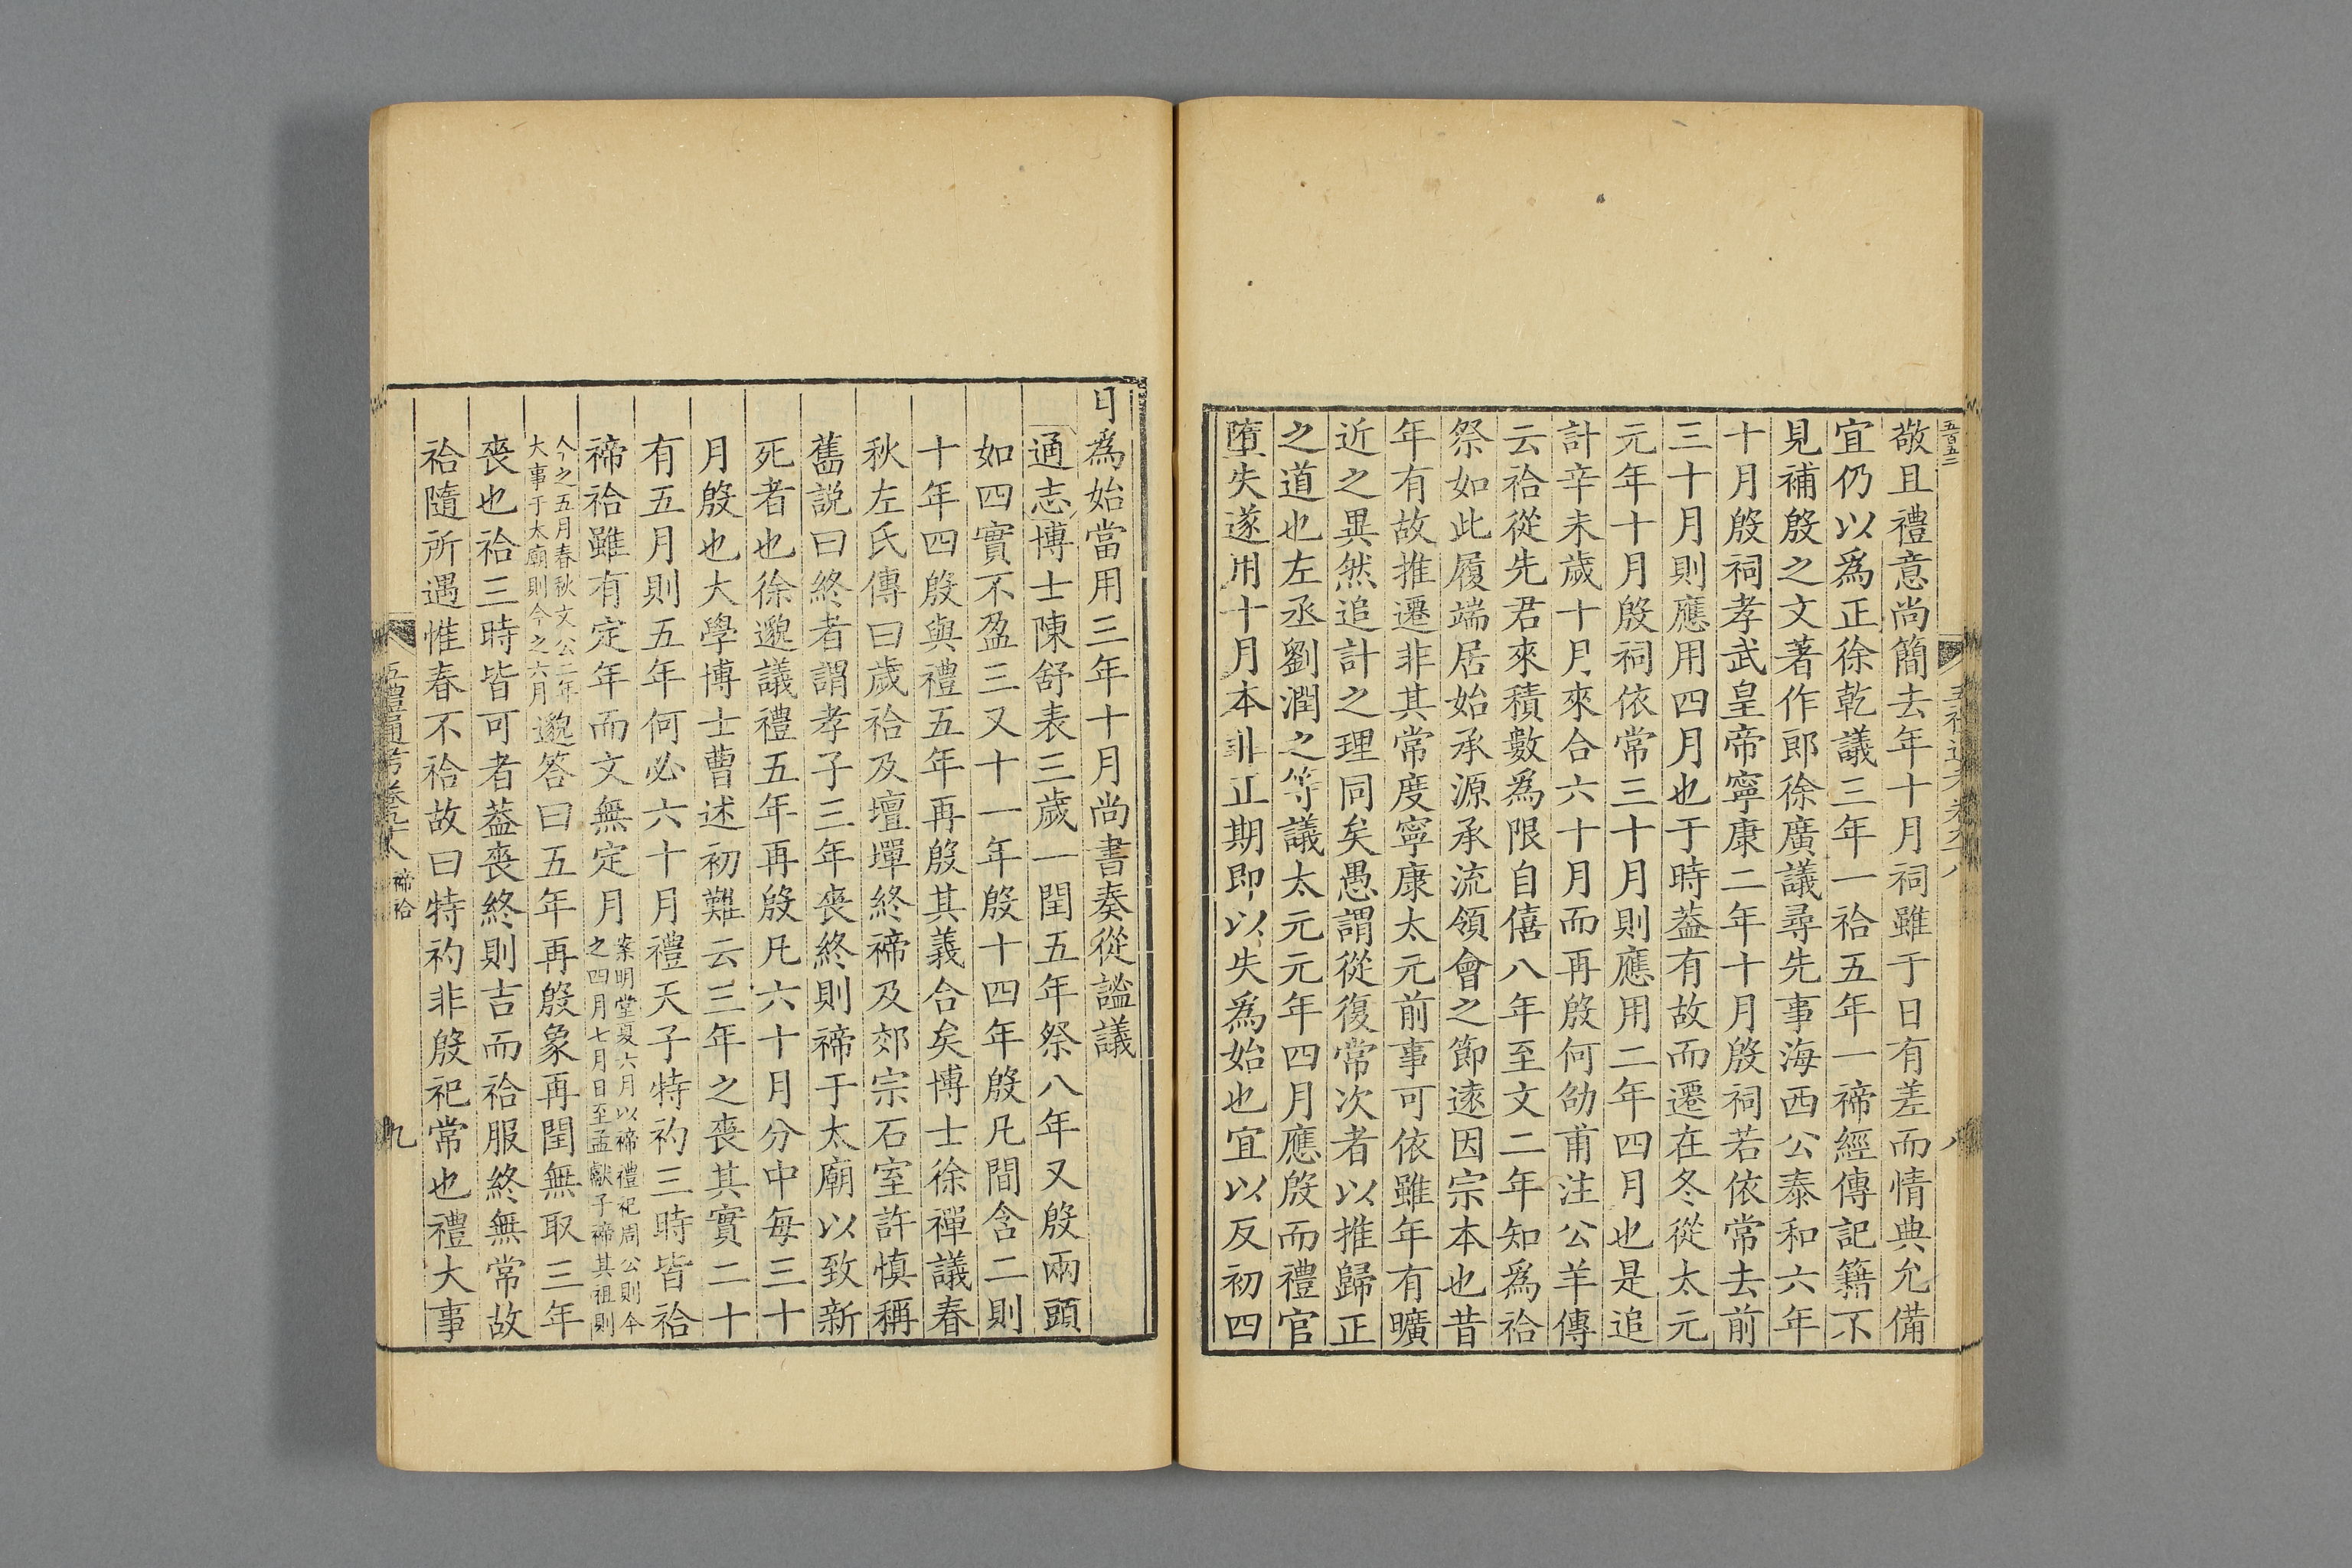 五百五二
敬且禮意尚簡去年十月祠雖于日有差而情典允備
宜仍以爲正徐乾議三年一祫五年一禘經傳記籍不
見補殷之文著作郎徐廣議尋先事海西公泰和六年
十月殷祠孝武皇帝寧康二年十月殷祠若依常去前
三十月則應用四月也于時葢有故而遷在冬從太元
元年十月殷祠依常三十月則應用二年四月也是追
計辛未歲十月來合六十月而再殷何劭甫注公羊傳
云祫從先君來積數爲限自僖八年至文二年知爲祫
祭如此履端居始承源承流領會之節遠因宗本也昔
年有故推遷非其常度寧康太元前事可依雖年有曠
近之異然追計之理同矣愚謂從復常次者以推歸正
之道也左丞劉潤之等議太元元年四月應殷而禮官
墮失遂用十月本非正期即以失爲始也宜以反初四
月爲始當用三年十月尚書奏從謐議
通志博士陳舒表三歲一閏五年祭八年又殷兩頭
如四實不盈三又十一年殷十四年殷凡間含二則
十年四殷與禮五年再殷其義合矣博士徐禪議春
秋左氏傳曰歲祫及壇墠終禘及郊宗石室許慎稱
舊説曰終者謂孝子三年喪終則禘于太廟以致新
死者也徐邈議禮五年再殷凡六十月分中每三十
月殷也大學博士曹述初難云三年之喪其實二十
有五月則五年何必六十月禮天子特礿三時皆祫
禘祫雖有定年而文無定月案明堂夏六月以禘禮祀周公則今
之四月七月日至孟獻子禘其祖則
今之五月春秋文公二年
大事于太廟則今之六月邈答曰五年再殷象再閏無取三年
喪也祫三時皆可者葢喪終則吉而祫服終無常故
祫隨所遇惟春不祫故曰特礿非殷祀常也禮大事
五禮通考卷九十八 禘祫 九